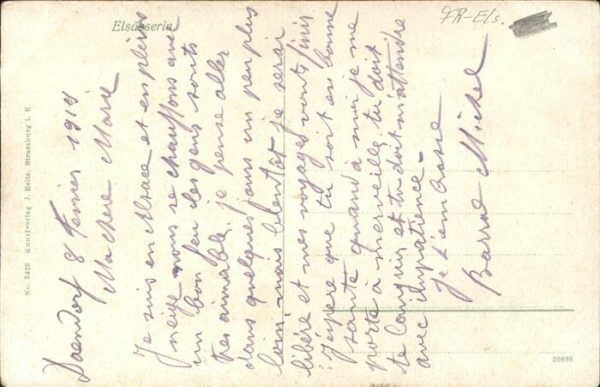 Elsässerin
FR-Els.
No. 5439 Kunstverlag J. Rolle, Strassburg i. E.
20889
8 Fevrier 1919
Ma chere Marie
Je suis en Alsace et en pleine
neige nous se chauffons avec
un bon feu les gens sonts
tres aimable, je pense aller
dans quelques jours un peu plus
loin mais bientôt je serai
libéré et mes voyages vonts finis
J'éspere que tu soit en bonne
sante quand à moi je me
porte à merveille, tu doit
te languir et tu doit m'attendre
avec impatience.
Je t'embrasse
Barral Michel